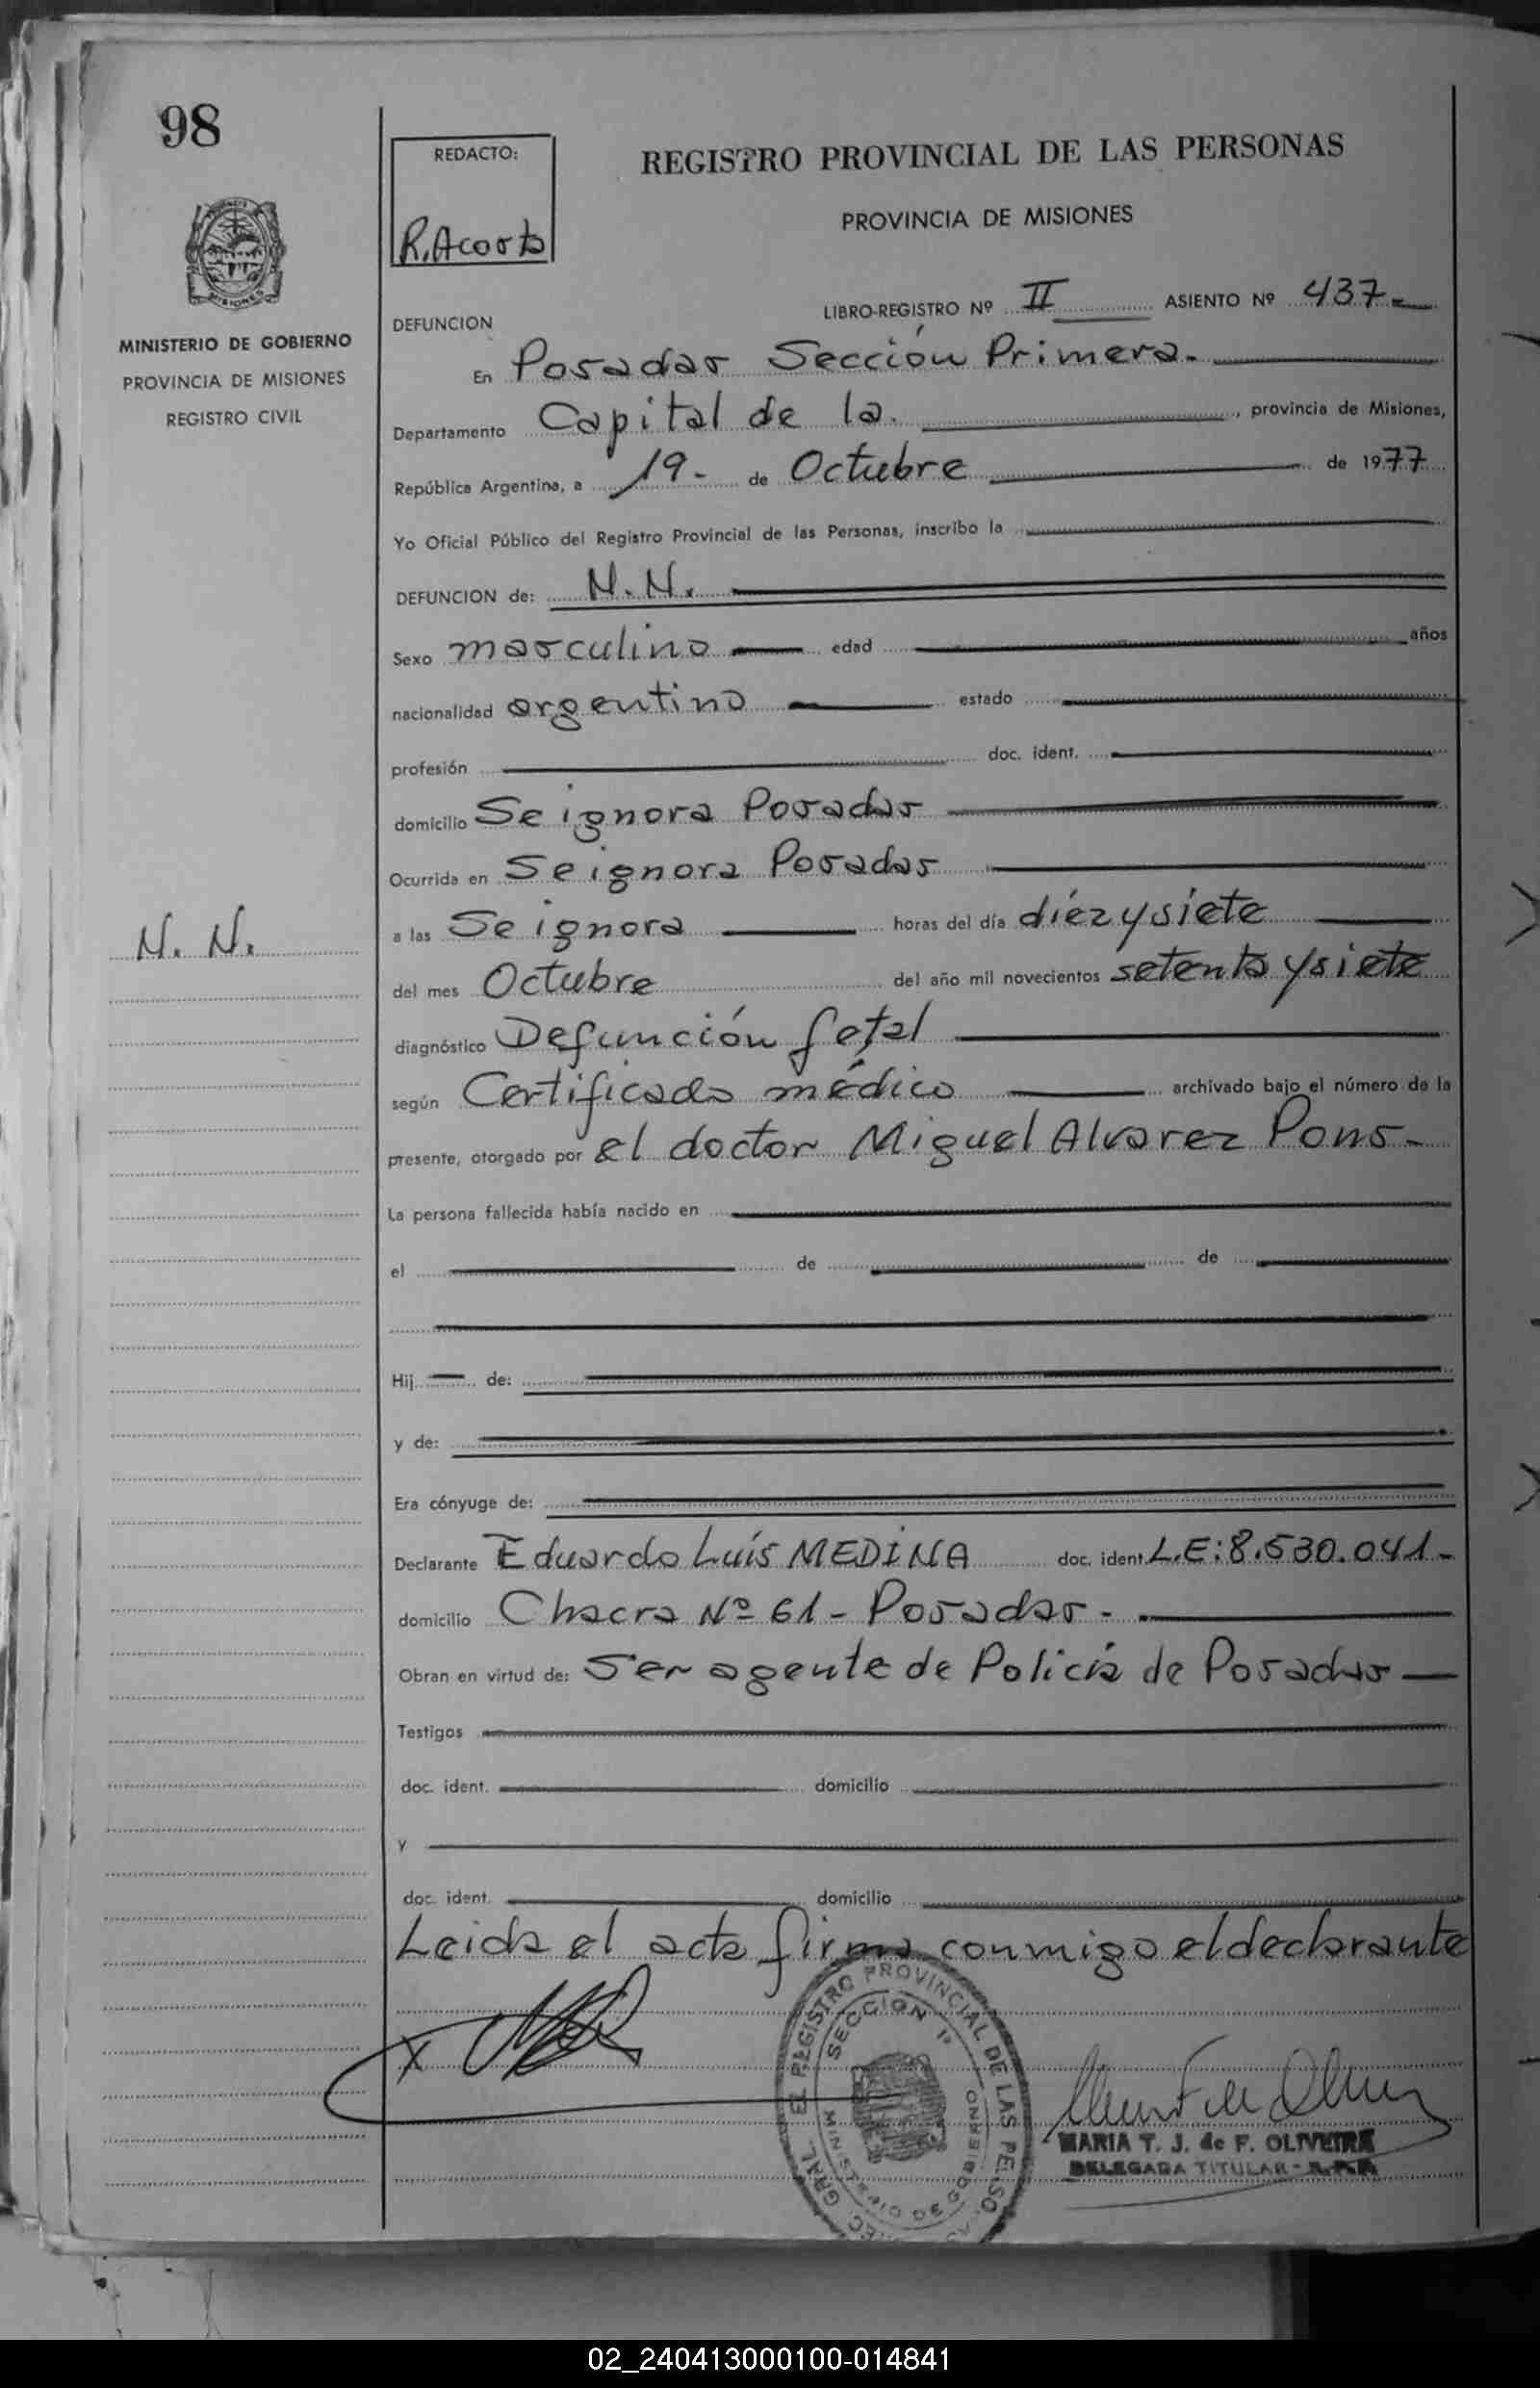 98
REDACTO:
R. Acosta
REGISTRO PROVINCIAL DE LAS PERSONAS
PROVINCIA DE MISIONES
MISIONES
MINISTERIO DE GOBIERNO
PROVINCIA DE MISIONES
REGISTRO CIVIL
LIBRO-REGISTRO Nº II ASIENTO Nº 437-
DEFUNCION
En Posadas Sección Primera.
Departamento Capital de la. , provincia de Misiones,
República Argentina, a 19- de Octubre de 1977
Yo Oficial Público del Registro Provincial de las Personas, inscribo la
DEFUNCION de: N. N.
Sexo masculino edad años
nacionalidad argentino estado
profesión doc. ident.
domicilio Se ignora Posadas
Ocurrida en Se ignora Posadas
N. N.
a las Se ignora horas del día diéz y siete
del mes Octubre del año mil novecientos setenta y siete
diagnóstico Defunción fetal
según Certificado médico archivado bajo el número de la
presente, otorgado por el doctor Miguel Alvarez Pons-
La persona fallecida había nacido en
el de de
Hij de:
y de:
Era cónyuge de:
Declarante Eduardo Luís MEDINA doc. ident. L.E: 8.530.041-
domicilio Chacra Nº 61 - Posadas -
Obran en virtud de: Ser agente de Policía de Posadas
Testigos
doc. ident. domicilio
y
doc. ident. domicilio
Leida el acta firma conmigo el declarante
X
REGISTRO PROVINCIAL DE LAS
SECCION 1ª
MINISTERIO DE GOBIERNO
MARIA T. J. de F. OLIVEIRA
DELEGADA TITULAR -
02_240413000100-014841